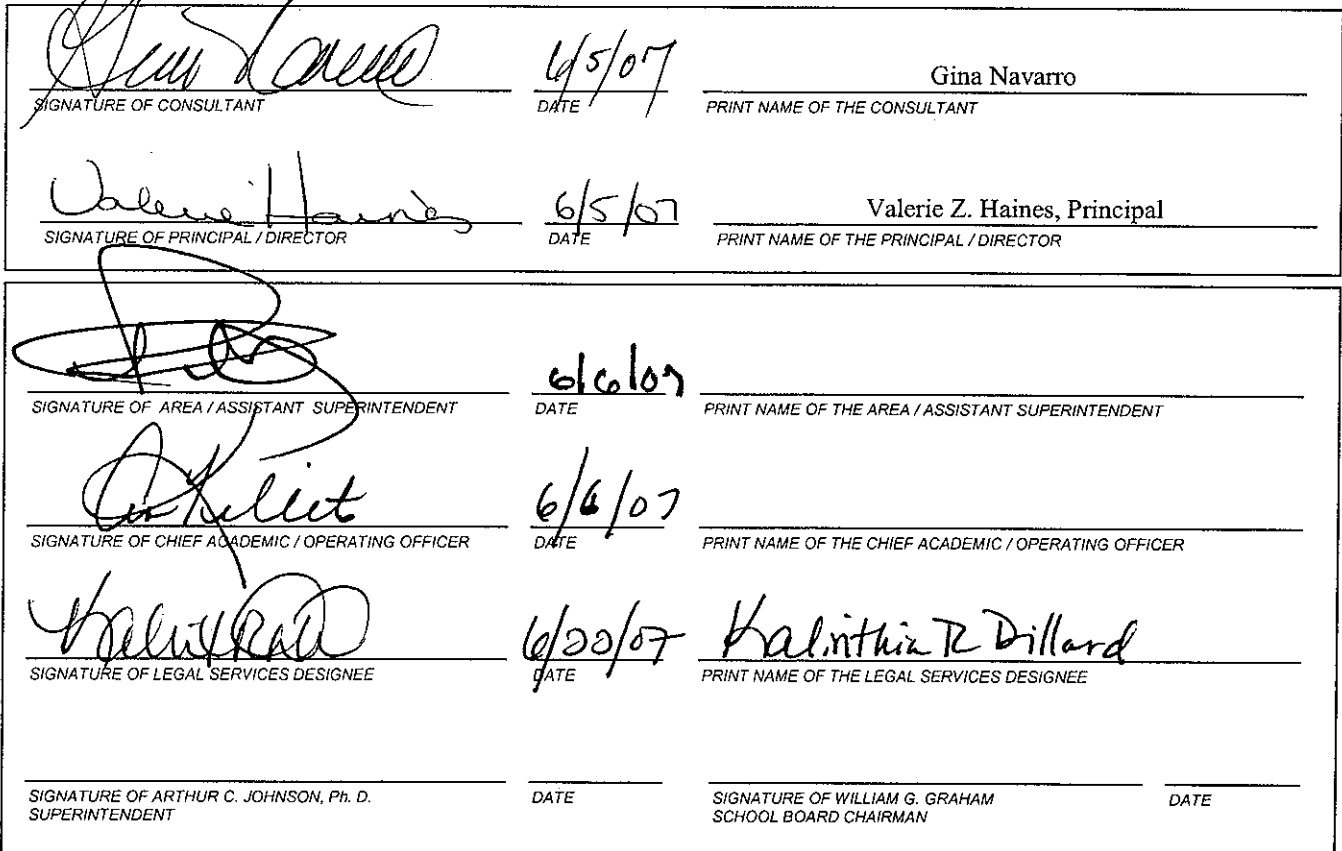 6/5/07 Gina Navarro
SIGNATURE OF CONSULTANT DATE PRINT NAME OF THE CONSULTANT
Valerie Haines 6/5/07 Valerie Z. Haines, Principal
SIGNATURE OF PRINCIPAL / DIRECTOR DATE PRINT NAME OF THE PRINCIPAL / DIRECTOR
6/6/07
SIGNATURE OF AREA / ASSISTANT SUPERINTENDENT DATE PRINT NAME OF THE AREA / ASSISTANT SUPERINTENDENT
6/6/07
SIGNATURE OF CHIEF ACADEMIC / OPERATING OFFICER DATE PRINT NAME OF THE CHIEF ACADEMIC / OPERATING OFFICER
Kalinthia R Dillard
SIGNATURE OF LEGAL SERVICES DESIGNEE DATE PRINT NAME OF THE LEGAL SERVICES DESIGNEE
SIGNATURE OF ARTHUR C. JOHNSON, Ph. D. DATE SIGNATURE OF WILLIAM G. GRAHAM DATE
SUPERINTENDENT SCHOOL BOARD CHAIRMAN